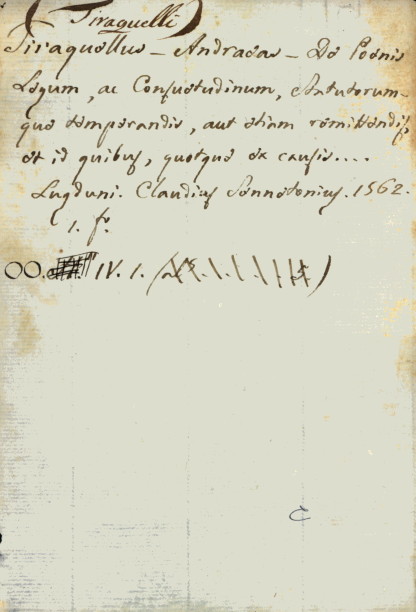 (Tiraquelli)
Tiraquellus - Andraeas - De Poenis
Legum, ac Consuetudinum, Statutorum-
que temperandis, aut etiam remittendis,
et id quibus, quotque ex causis....
Lugduni. Claudius Sennetonius. 1562.
1. fo.
OO. IV. 1.
C